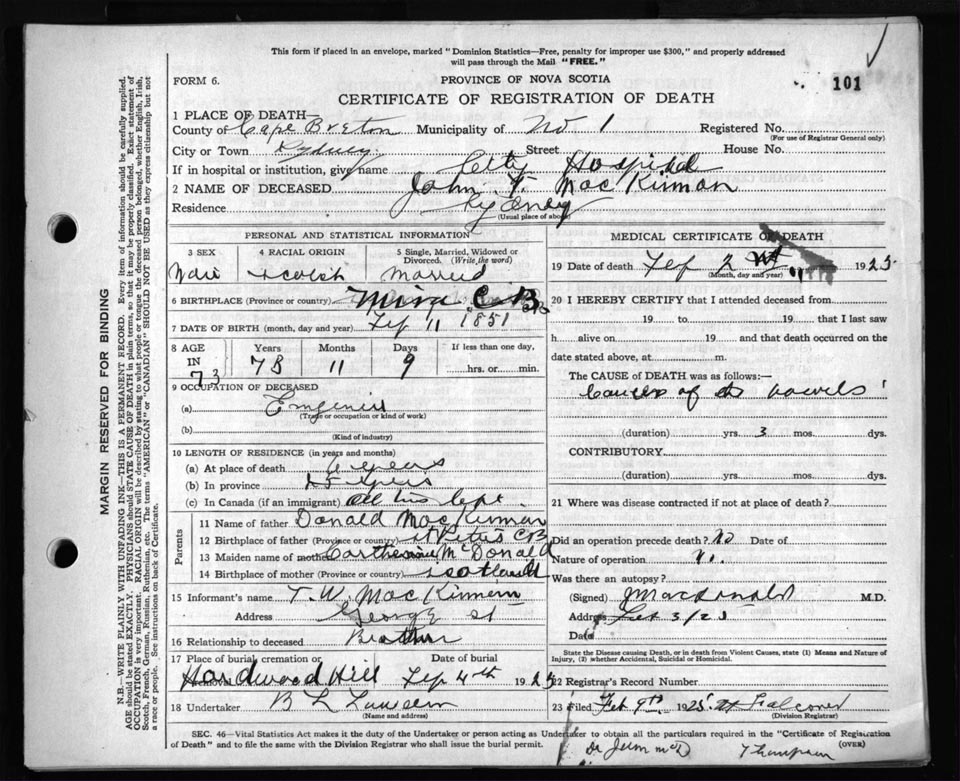 This form if placed in an envelope, marked "Dominion Statistics—Free, penalty for improper use $300," and properly addressed
will pass through the Mail "FREE."
FORM 6.
PROVINCE OF NOVA SCOTIA
101
CERTIFICATE OF REGISTRATION OF DEATH
1 PLACE OF DEATH
County of Cape Breton Municipality of No 1 Registered No.
(For use of Registrar General only)
City or Town Sydney Street House No.
If in hospital or institution, give name City Hospital
2 NAME OF DECEASED John F. MacKinnon
Residence Sydney
(Usual place of abode)
PERSONAL AND STATISTICAL INFORMATION
3 SEX 4 RACIAL ORIGIN 5 Single, Married, Widowed or Divorced. (Write the word)
Male Scotch Married
6 BIRTHPLACE (Province or country) Mira C.B.
7 DATE OF BIRTH (month, day and year) Feb 11 1851
8 AGE IN 73 Years 73 Months 11 Days 9 If less than one day, hrs. or min.
9 OCCUPATION OF DECEASED
(a)
(Trade or occupation or kind of work)
(b)
(Kind of industry)
10 LENGTH OF RESIDENCE (in years and months)
(a) At place of death years
(b) In province
(c) In Canada (if an immigrant) all his
Parents
11 Name of father Donald MacKinnon
12 Birthplace of father (Province or country) St Peters CB
13 Maiden name of mother Cartherine McDonald
14 Birthplace of mother (Province or country) Scotland
15 Informant's name T. W. MacKinnon
Address George St
16 Relationship to deceased Brother
17 Place of burial, cremation or removal Date of burial
Hardwood Hill Feb 4th 1925
18 Undertaker B L
(Name and address)
MEDICAL CERTIFICATE OF DEATH
19 Date of death Feb 2 1925
(Month, day and year)
20 I HEREBY CERTIFY that I attended deceased from
19 to 19 that I last saw
h alive on 19 and that death occurred on the
date stated above, at m.
The CAUSE of DEATH was as follows:—
Cancer of the bowels
(duration) yrs. 3 mos. dys.
CONTRIBUTORY.
(duration) yrs. mos. dys.
21 Where was disease contracted if not at place of death?
Did an operation precede death? No Date of
Nature of operation
Was there an autopsy?
(Signed) J MacDonald M.D.
Address Feb 3/25
Date
State the Disease causing Death, or in death from Violent Causes, state (1) Means and Nature of
Injury, (2) whether Accidental, Suicidal or Homicidal.
22 Registrar's Record Number
23 Filed Feb 9th 1925 Falconer
(Division Registrar)
SEC. 46—Vital Statistics Act makes it the duty of the Undertaker or Person acting as Undertaker to obtain all the particulars required in the "Certificate of Registration
of Death" and to file the same with the Division Registrar who shall issue the burial permit.
(OVER)
Thompson
MARGIN RESERVED FOR BINDING
N.B.—WRITE PLAINLY WITH UNFADING INK—THIS IS A PERMANENT RECORD. Every item of information should be carefully supplied.
AGE should be stated EXACTLY. PHYSICIANS should STATE CAUSE OF DEATH in plain terms, so that it may be properly classified. Exact statement of
OCCUPATION is very important. RACIAL ORIGIN will be described by stating to what people or tongue the deceased person belonged, whether English, Irish,
Scotch, French, German, Russian, Ruthenian, etc. The terms "AMERICAN" or "CANADIAN" SHOULD NOT BE USED as they express citizenship but not
a race or people. See instructions on back of Certificate.